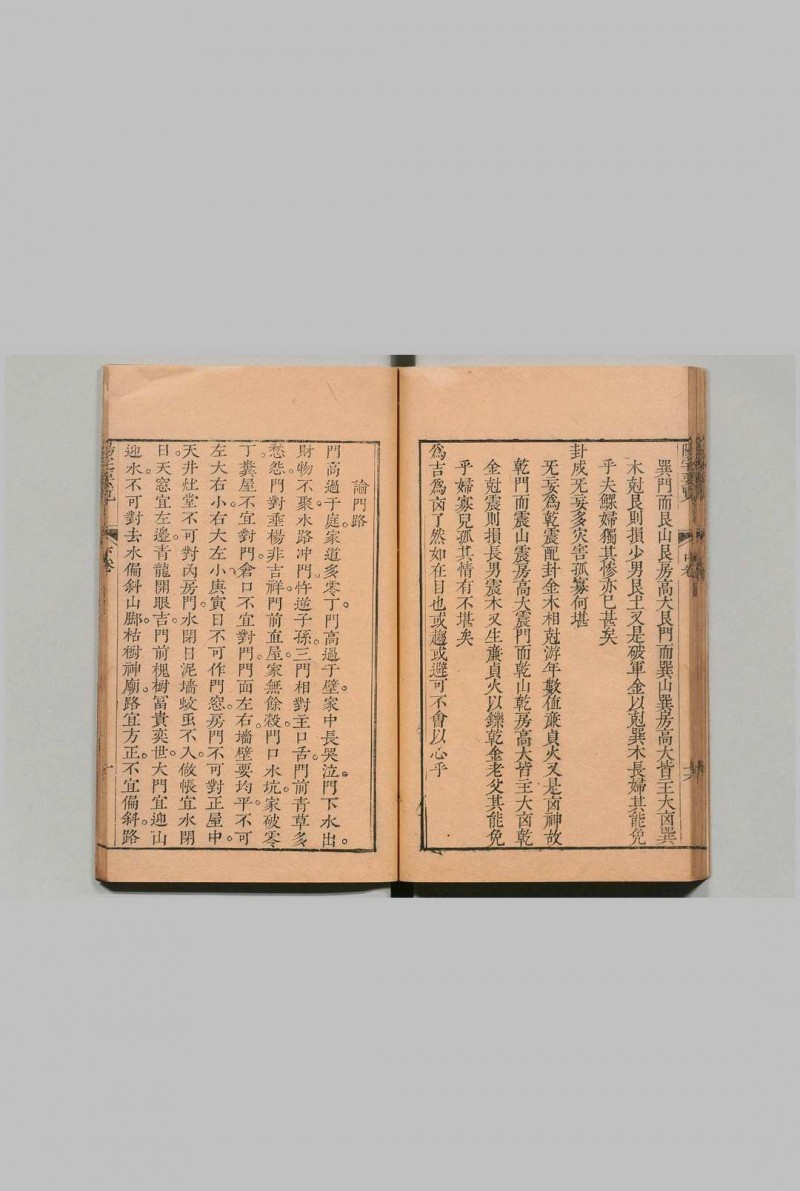 巽門而艮山艮房高大艮門而巽山巽房高大皆主大卤巽
木尅艮則損少男艮土又是破軍金以尅巽木長婦其能免
乎夫鰥婦獨其慘亦已甚矣
卦成无妄多災害孤寡何堪
无妄爲乾震配卦金木相尅游年數值廉貞火又是卤神故
乾門而震山震房高大震門而乾山乾房高大皆主大卤乾
金尅震則損長男震木又生廉貞火以鑠乾金老父其能免
乎婦寡兒孤其情有不堪矣
爲吉爲卤了然如在目也或趨或避可不會以心乎
中卷
論門路
門高過于庭家道多零丁門高過于壁家中長哭泣門下水出。
財物不聚水路冲門忤逆子孫三門相對主口舌門前青草多
愁怨門對垂楊非吉祥門前直屋家無餘穀門口水坑家破零
丁糞屋不宜對門倉口不宜對門門面左右墻壁要均平不可
左大右小右大左小庚寅日不可作門窓房門不可對正屋中
天井灶堂不可對丙房門水閉日泥墻蚊䖝不入做帳宜水閉
日天窓宜左邊青龍開眼吉門前槐樹富貴奕世大門宜迎山
迎水不可對去水偏斜山脚枯樹神廟路宜方正不宜偏斜路
下卷
一